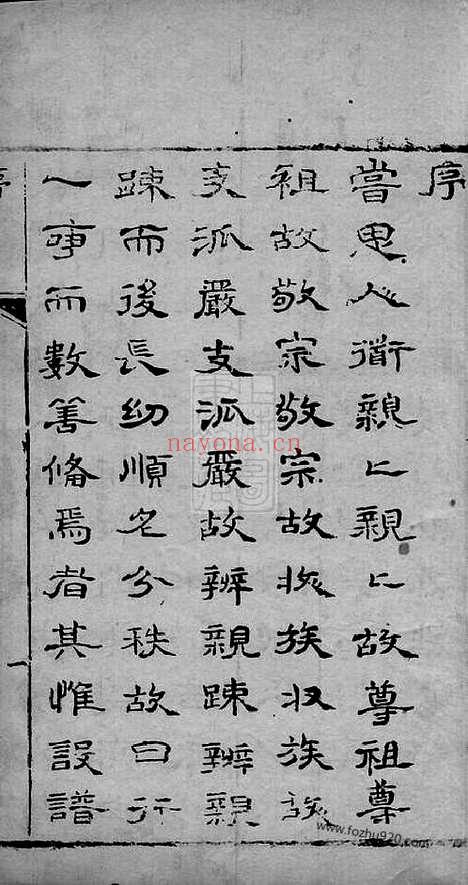 序
嘗思人衟親〻親〻故尊祖尊
祖故敬宗敬宗故收族收族故
支派嚴支派嚴故辨親踈辨親
踈而後長幼順名分秩故曰行
一事而數善備焉者其惟設譜
序
一
nayona.cn
www.fozhu920.com